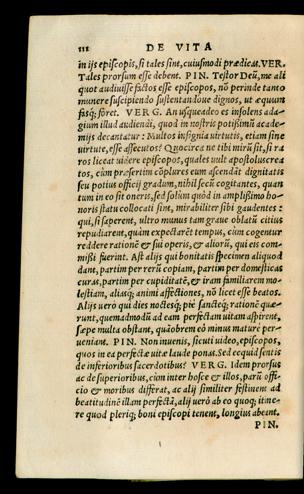 112 DE VITA
in ijs episcopis, si tales sint, cuiusmodi prædicas. VER.
Tales prorsum esse debent. PIN. Testor Deũ, me ali
quot audiuisse factos esse episcopos, nõ perinde tanto
munere suscipiendo sustentandoue dignos, ut æquum
fasq; foret. VERG. An usqueadeo es insolens ada-
gium illud audiendi, quod in nostris potissimũ acade-
mijs decantatur: Multos insignia uirtutis, etiam sine
uirtute, esse assecutos? Quocirca ne tibi mirũ sit, si ra
ros liceat uidere episcopos, quales uult apostolus crea
tos, cùm præsertim cõplures eum ascendãt dignitatis
seu potius officij gradum, nihil secũ cogitantes, quan
tum in eo sit oneris, sed solùm quòd in amplißimo ho-
noris statu collocati sint, mirabiliter sibi gaudentes:
qui, si saperent, ultro munus tam graue oblatũ citius
repudiarent, quàm expectarẽt tempus, cùm cogentur
reddere rationẽ & sui operis, & aliorũ, qui eis com-
mißi fuerint. Ast alijs qui bonitatis specimen aliquod
dant, partim per rerũ copiam, partim per domesticas
curas, partim per cupiditatẽ, & iram familiarem mo-
lestiam, aliasq; animi affectiones, nõ licet esse beatos.
Alijs uerò qui dies noctesq; piè sanctèq; rationẽ quæ-
runt, quemadmodũ ad eam perfectam uitam aspirent,
sæpe multa obstant, quãobrem eò minus maturè per-
ueniant. PIN. Non inuenis, sicuti uideo, episcopos,
quos in ea perfectæ uitæ laude ponas. Sed ecquid sentis
de inferioribus sacerdotibus? VERG. Idem prorsus
ac de superioribus, cùm inter hosce & illos, parũ offi-
cio & moribus differat, ac alij similiter festinent ad
beatitudinẽ illam perfectã, alij uerò ab eo quoq; itine-
re quod pleriq; boni episcopi tenent, longius abeant.
PIN.